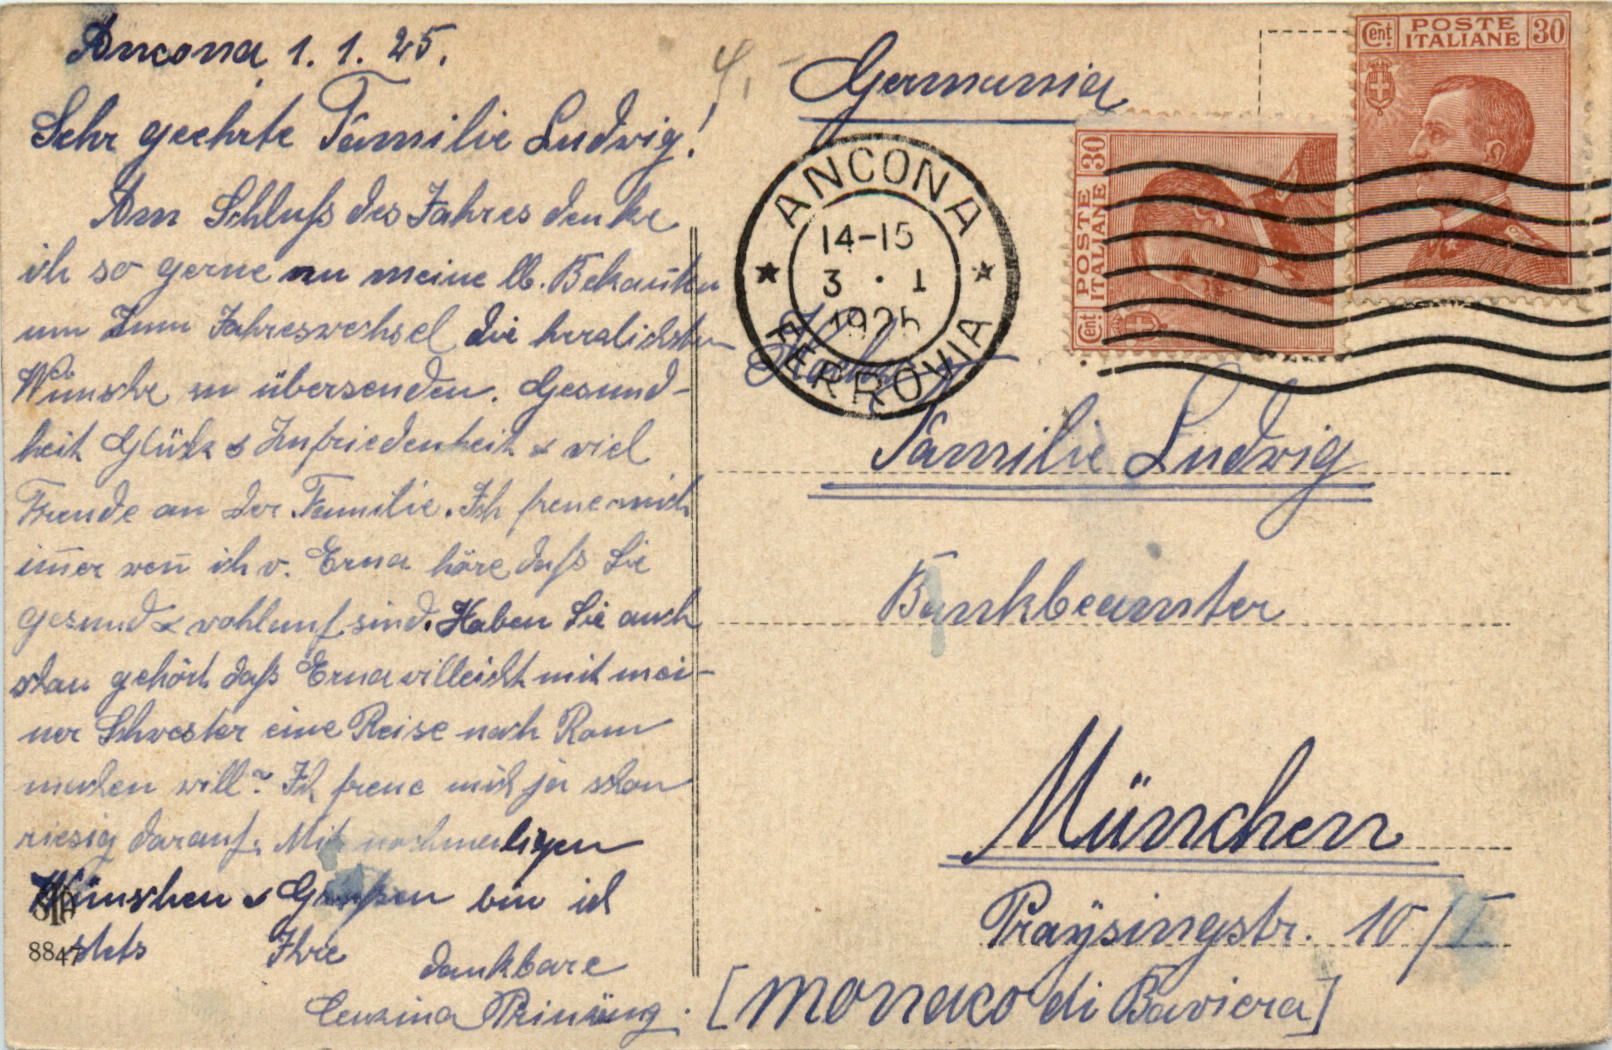 Ancona, 1. 1. 25.
Sehr geehrte Familie Ludwig!
Am Schluß des Jahres denke
ich so gerne an meine lb. Bekañten
um zum Jahreswechsel die herzlichsten
Wünsche zu übersenden. Gesund-
heit Glück & Zufriedenheit & viel
Freude an der Familie. Ich freue mich
im̄er weñ ich v. Erna höre daß Sie
gesund & wohlauf sind. Haben Sie auch
schon gehört daß Erna villeicht mit mei-
ner Schwester eine Reise nach Rom
machen will? Ich freue mich ja schon
riesig darauf. Mit nochmaligen
Wünschen & Grüßen bin ich
stets Ihre
dankbare
8847
4,-
Germania
POSTE ITALIANE
Cent 30
POSTE ITALIANE
Cent 30
ANCONA
14-15
3 · 1
1925
FERROVIA
Familie Ludwig
Bankbeamter
München
Praysingstr. 10/I
[Monaco di Baviera]